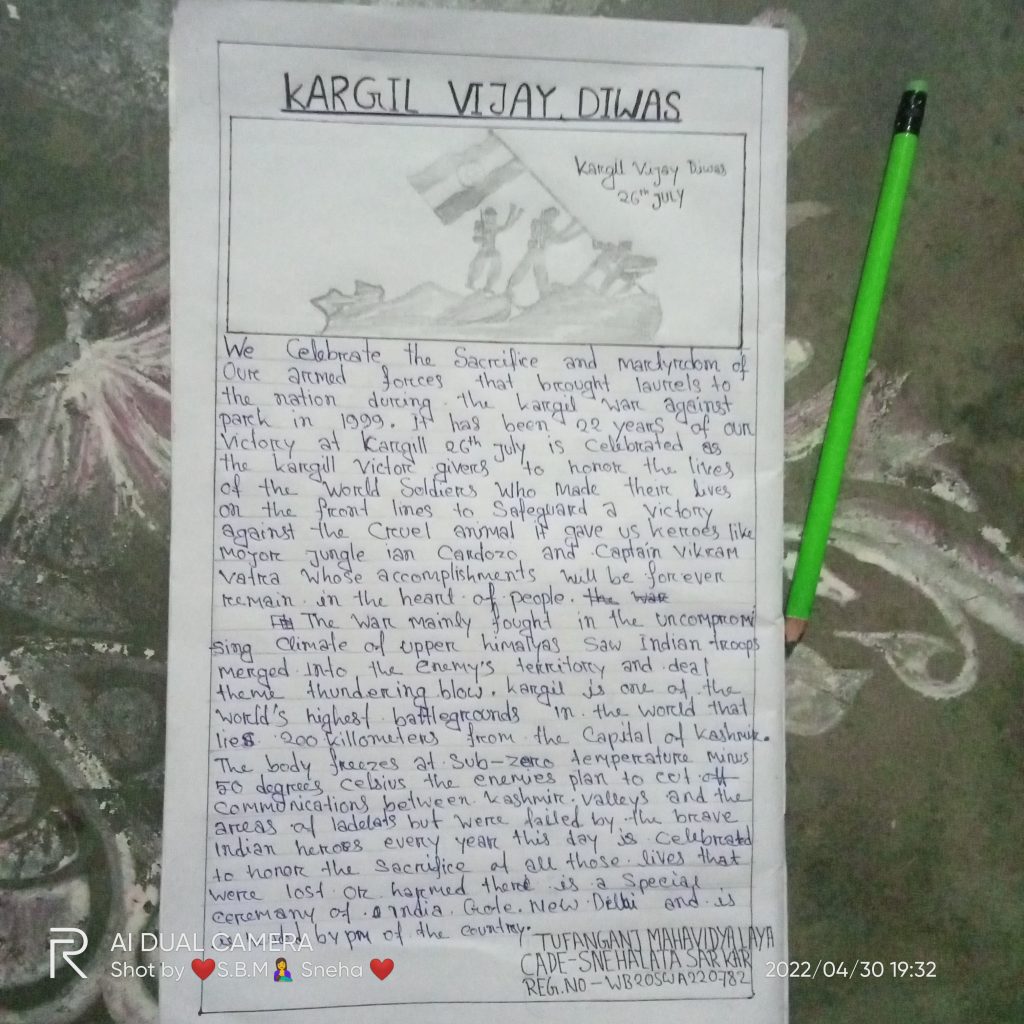 KARGIL VIJAY DIWAS
Kargil Vijay Diwas
26th JULY
We Celebrate the Sacrifice and martyrdom of
Our armed forces that brought laurels to
the nation during the kargil war against
park in 1999. it has been 22 years of our
victory at Kargill 26th july is Celebrated as
the kargill Victor givers to honor the lives
of the World Soldiers Who made their lives
on the front lines to Safeguard a victory
against the Cruel animal it gave us heroes like
Major jungle ian Cardozo and Captain Vikram
Vatra whose accomplishments will be forever
remain in the heart of people. the war
The War mainly fought in the uncompromi
sing Climate of upper himalyas Saw Indian troops
merged into the enemy's territory and deal
theme thundering blow. kargil is one of the
world's highest battlegrounds in the world that
lies 200 killometers from the Capital of Kashmir.
The body freezes at Sub-zero temperature minus
50 degrees celsius the enemies plan to cut off
communications between Kashmir valleys and the
areas of ladelats but were failed by the brave
Indian heroes every year this day is Celebrated
to honor the Sacrifice of all those lives that
were lost or harmed there is a Special
ceremany of India Gate. New Delhi and is
by pm of the country.
TUFANGANJ MAHAVIDYALLAYA
CADE-SNEHALATA SARKAR
REG.NO-WB20SWA220782
AI DUAL CAMERA
Shot by ❤️S.B.M🤦‍♀️ Sneha ❤️
2022/04/30 19:32